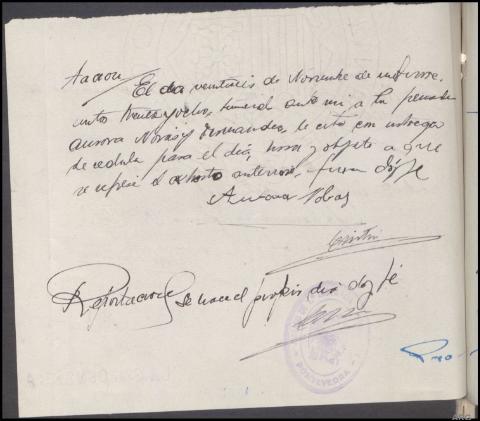 El dia veintiseis de Noviembre de mil nove-
cientos treinta y ocho, ante mi, a la penada
Aurora Novas y Fernandez, le cito con entrega
de cedula para el dia, hora y objeto a que
se refiere el anterior, firma doy fe
Aurora Nobas
Se hace el propio dia doy fe
PONTEVEDRA